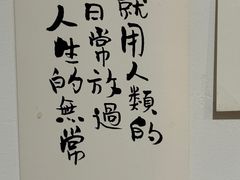 就用人類的
日常放過
人生的無常